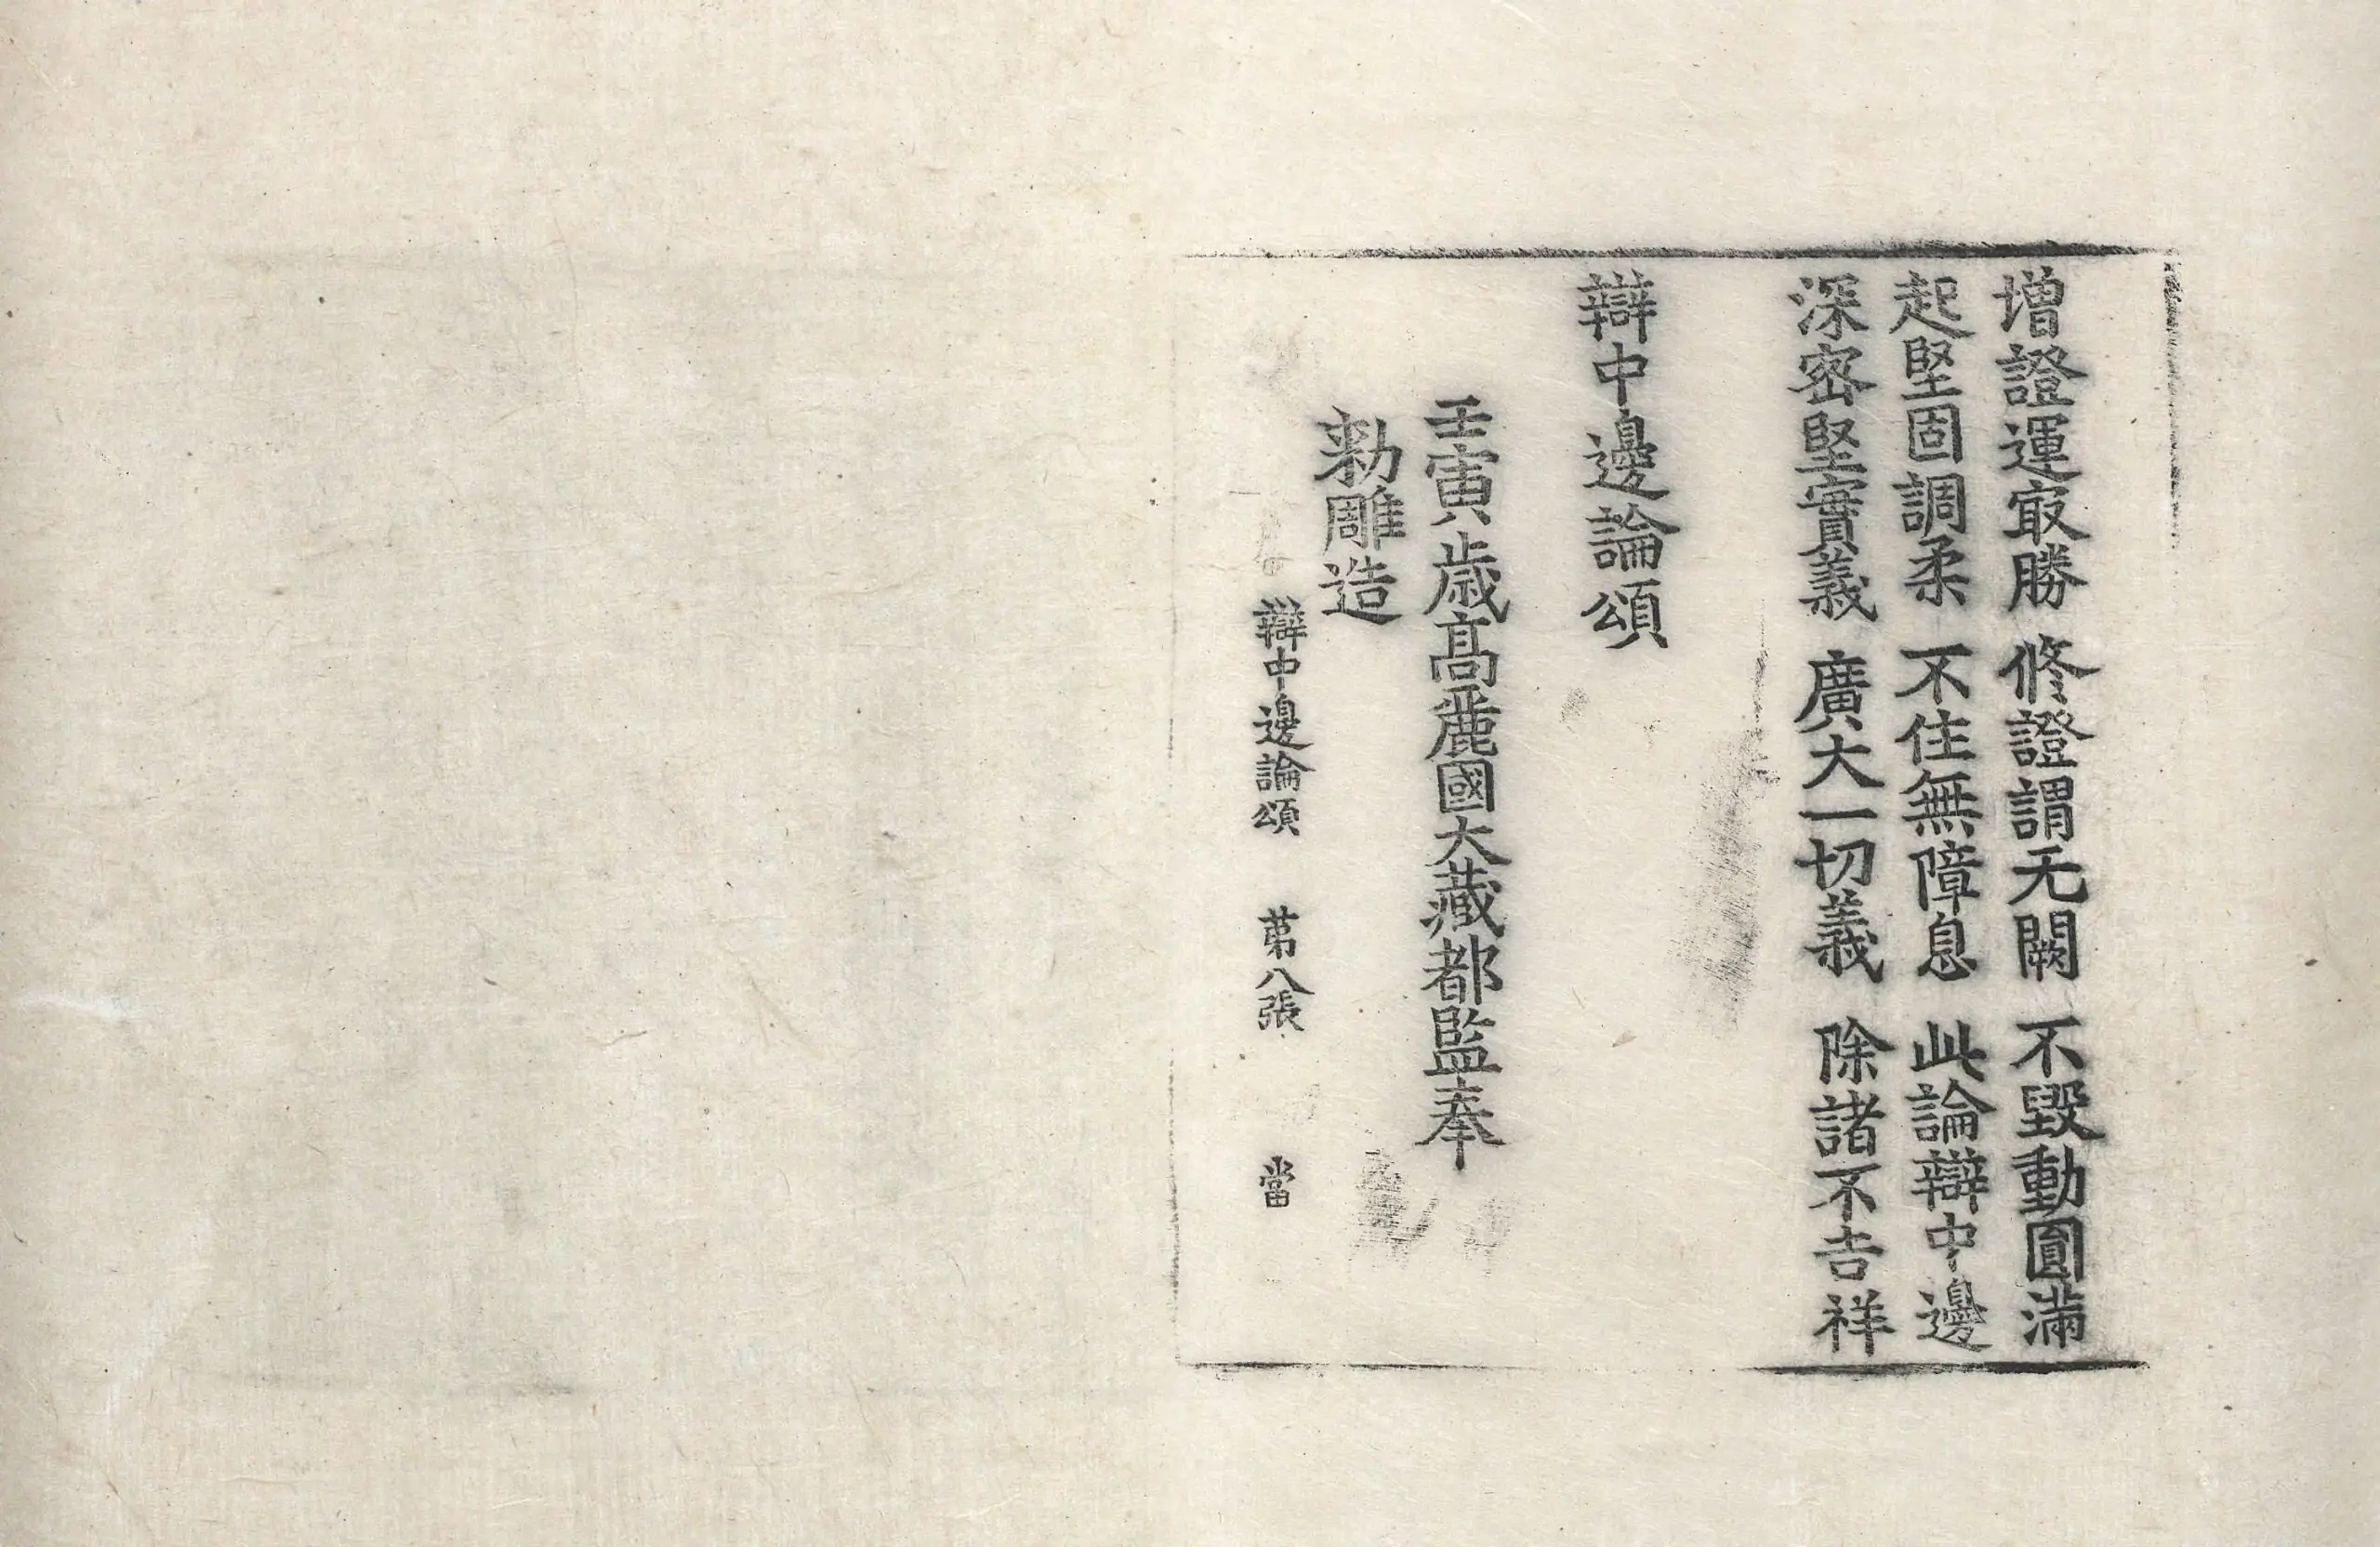 增證運㝡勝　修證謂无闕　不毀動圓滿
起堅固調柔　不住無障息　此論辯中邊
深密堅實義　廣大一切義　除諸不吉祥
辯中邊論頌
壬寅歲高麗國大藏都監奉
勑雕造
辯中邊論頌　第八張　當